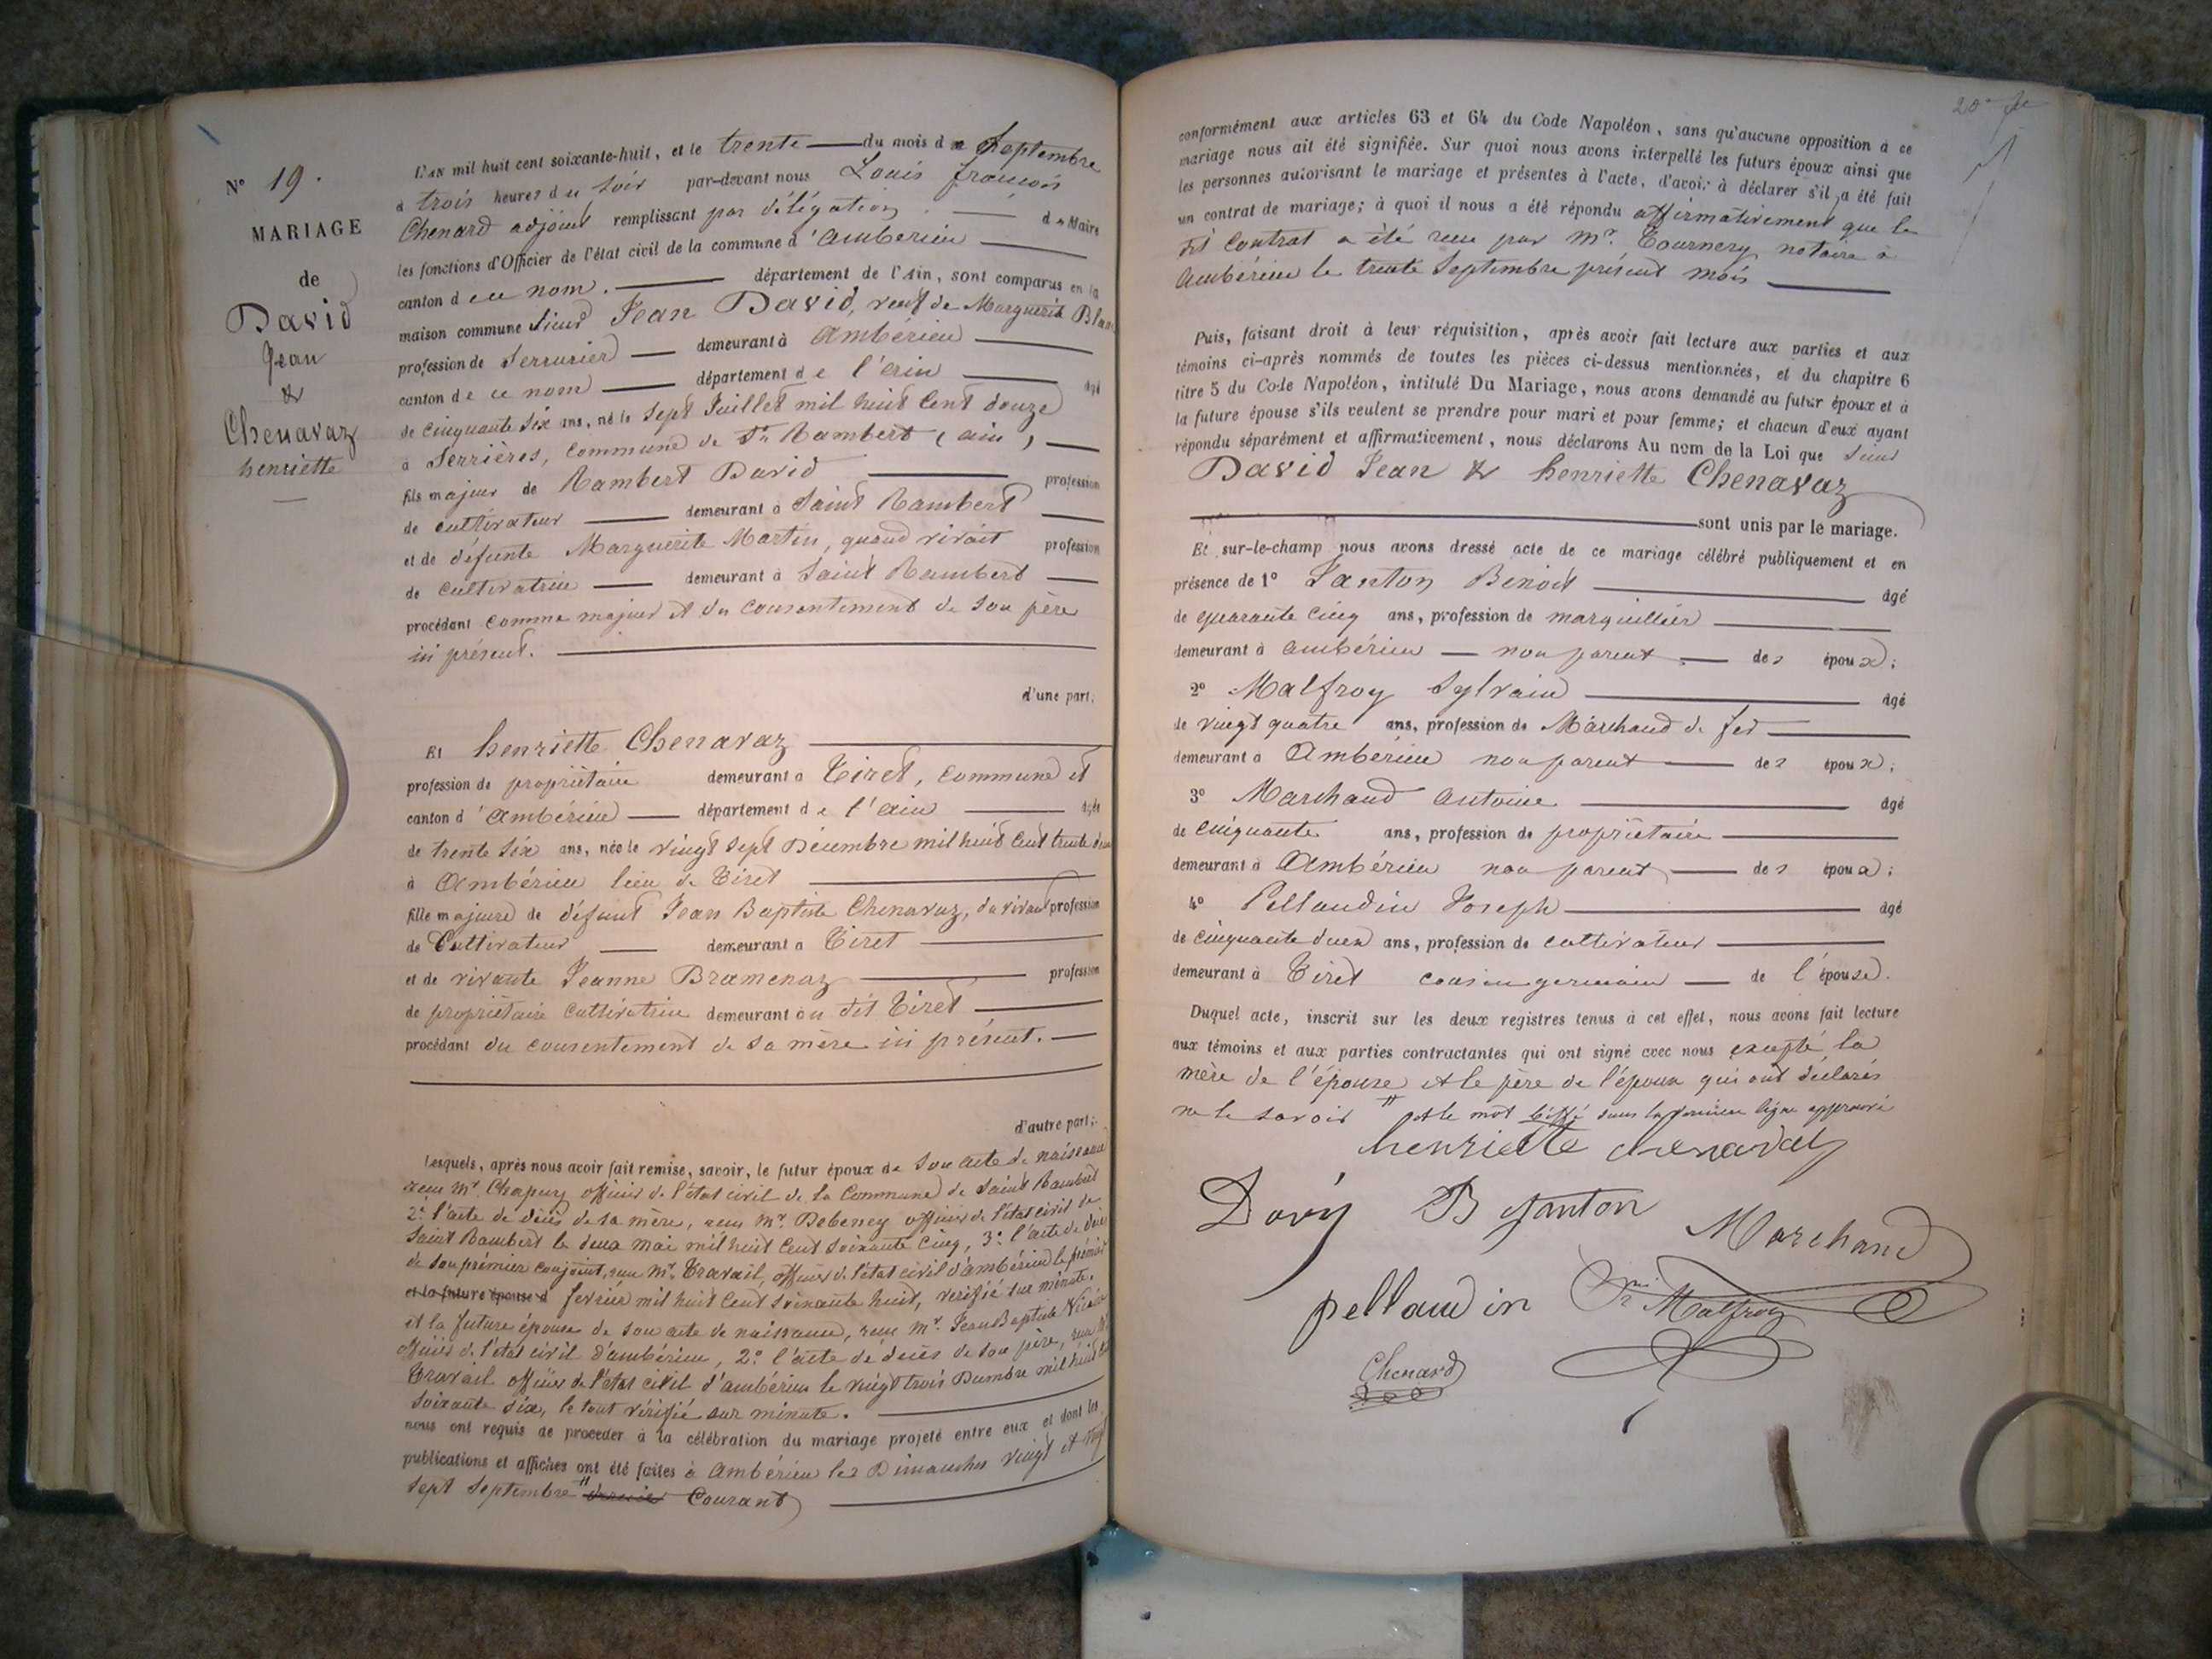 N° 19.
MARIAGE
de
David
Jean
&
Chenavaz
henriette
L'AN mil huit cent soixante-huit, et le trente du mois de Septembre
à trois heures du soir par-devant nous Louis françois
Chenard adjoint remplissant par délégation du Maire
les fonctions d'Officier de l'état civil de la commune d'ambérieu
canton de ce nom. département de l'Ain, sont comparus en la
maison commune sieur Jean David, veuf de Marguerite Blanc
profession de Serrurier demeurant à Ambérieu
canton de ce nom département de l'ain âgé
de cinquante six ans, né le sept Juillet mil huit cent douze
à Serrières, commune de St Rambert (ain)
fils majeur de Rambert David profession
de cultivateur demeurant à Saint Rambert
et de défunte Marguerite Martin, quand vivait profession
de cultivatrice demeurant à Saint Rambert
procédant comme majeur et du consentement de son père
ici présent.
d'une part;
Et henriette Chenavaz
profession de propriétaire demeurant à Tiret, commune et
canton d'Ambérieu département de l'ain âgée
de trente six ans, née le vingt sept Décembre mil huit cent trente deux
à Ambérieu lieu de Tiret
fille majeure de défunt Jean Baptiste Chenavaz, du vivant profession
de Cultivateur demeurant à Tiret
et de vivante Jeanne Bramenaz profession
de propriétaire cultivatrice demeurant au dit Tiret
procédant du consentement de sa mère ici présent.
d'autre part;
Lesquels, après nous avoir fait remise, savoir, le futur époux de son acte de naissance
reçu Mr. Chapuy officier de l'état civil de la Commune de Saint Rambert
2° l'acte de décès de sa mère, reçu Mr. Debeney officier de l'état civil de
Saint Rambert le deux mai mil huit cent soixante cinq, 3° l'acte de décès
de son prémier conjoint, reçu Mr. Travail, officier de l'état civil d'ambérieu le prémier
et la future épouse d février mil huit cent soixante huit, vérifié sur minute.
et la future épouse de son acte de naissance, reçu Mr. Jean Baptiste
officier de l'état civil d'ambérieu, 2° l'acte de décès de son père, reçu Mr
Travail officier de l'état civil d'ambérieu le vingt trois Décembre mil huit cent
soixante six, le tout vérifié sur minute.
nous ont requis de procéder à la célébration du mariage projeté entre eux et dont les
publications et affiches ont été faites à Ambérieu les Dimanches vingt et vingt
sept septembre " dernier Courant
conformément aux articles 63 et 64 du Code Napoléon, sans qu'aucune opposition à ce
mariage nous ait été signifiée. Sur quoi nous avons interpellé les futurs époux ainsi que
les personnes autorisant le mariage et présentes à l'acte, d'avoir à déclarer s'il a été fait
un contrat de mariage; à quoi il nous a été répondu affirmativement que le
dit Contrat a été reçu par Mr. Tournery notaire à
Ambérieu le trente Septembre présent mois
Puis, faisant droit à leur réquisition, après avoir fait lecture aux parties et aux
témoins ci-après nommés de toutes les pièces ci-dessus mentionnées, et du chapitre 6
titre 5 du Code Napoléon, intitulé Du Mariage, nous avons demandé au futur époux et à
la future épouse s'ils veulent se prendre pour mari et pour femme; et chacun d'eux ayant
répondu séparément et affirmativement, nous déclarons Au nom de la Loi que sieur
David Jean & henriette Chenavaz
sont unis par le mariage.
Et sur-le-champ nous avons dressé acte de ce mariage célébré publiquement et en
présence de 1° Janton Benoit âgé
de quarante cinq ans, profession de marguillier
demeurant à ambérieu non parent des époux;
2° Malfroy Sylvain âgé
de vingt quatre ans, profession de Marchand de fer
demeurant à Ambérieu non parent des époux;
3° Marchand antoine âgé
de cinquante ans, profession de propriétaire
demeurant à Ambérieu non parent des époux;
4° Pellaudin Joseph âgé
de cinquante deux ans, profession de cultivateur
demeurant à Tiret cousin germain de l'épouse.
Duquel acte, inscrit sur les deux registres tenus à cet effet, nous avons fait lecture
aux témoins et aux parties contractantes qui ont signé avec nous excepté la
mère de l'épouse et le père de l'époux qui ont déclarés
ne le savoir " et le mot biffé dans la dernière ligne approuvé
henriette chenavaz
Davy B Janton Marchand
pellaudin Malfroy
Chenard